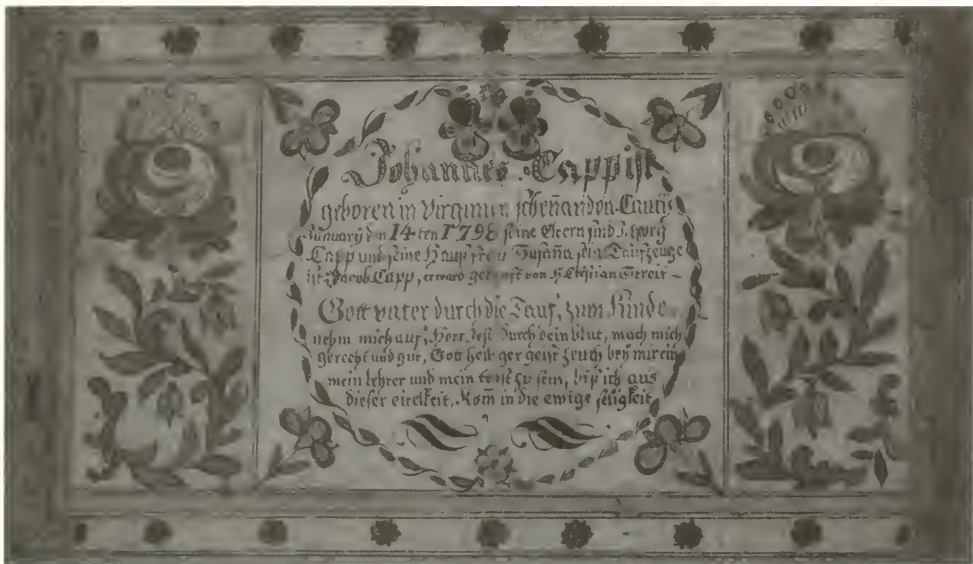 Johannes Capp ist
geboren in Virginien schenandou Caunty
Januarÿ den 14 ten 1798 seine Eltern sind Georg
Capp und seine Hausfrau Susaña sein Taufzeuge
ist Jacob Capp, er ward getauft von H. Christian Streit
Gott vater durch die Tauf, zum Kinde
nehm mich auf, Herr Jesu durch dein blut, mach mich
gerecht und gut, Gott heiliger geist zeuch beÿ mir ein
mein lehrer und mein trost zu sein, bis ich aus
dieser eitelkeit, Kom̃ in die ewige seligkeit